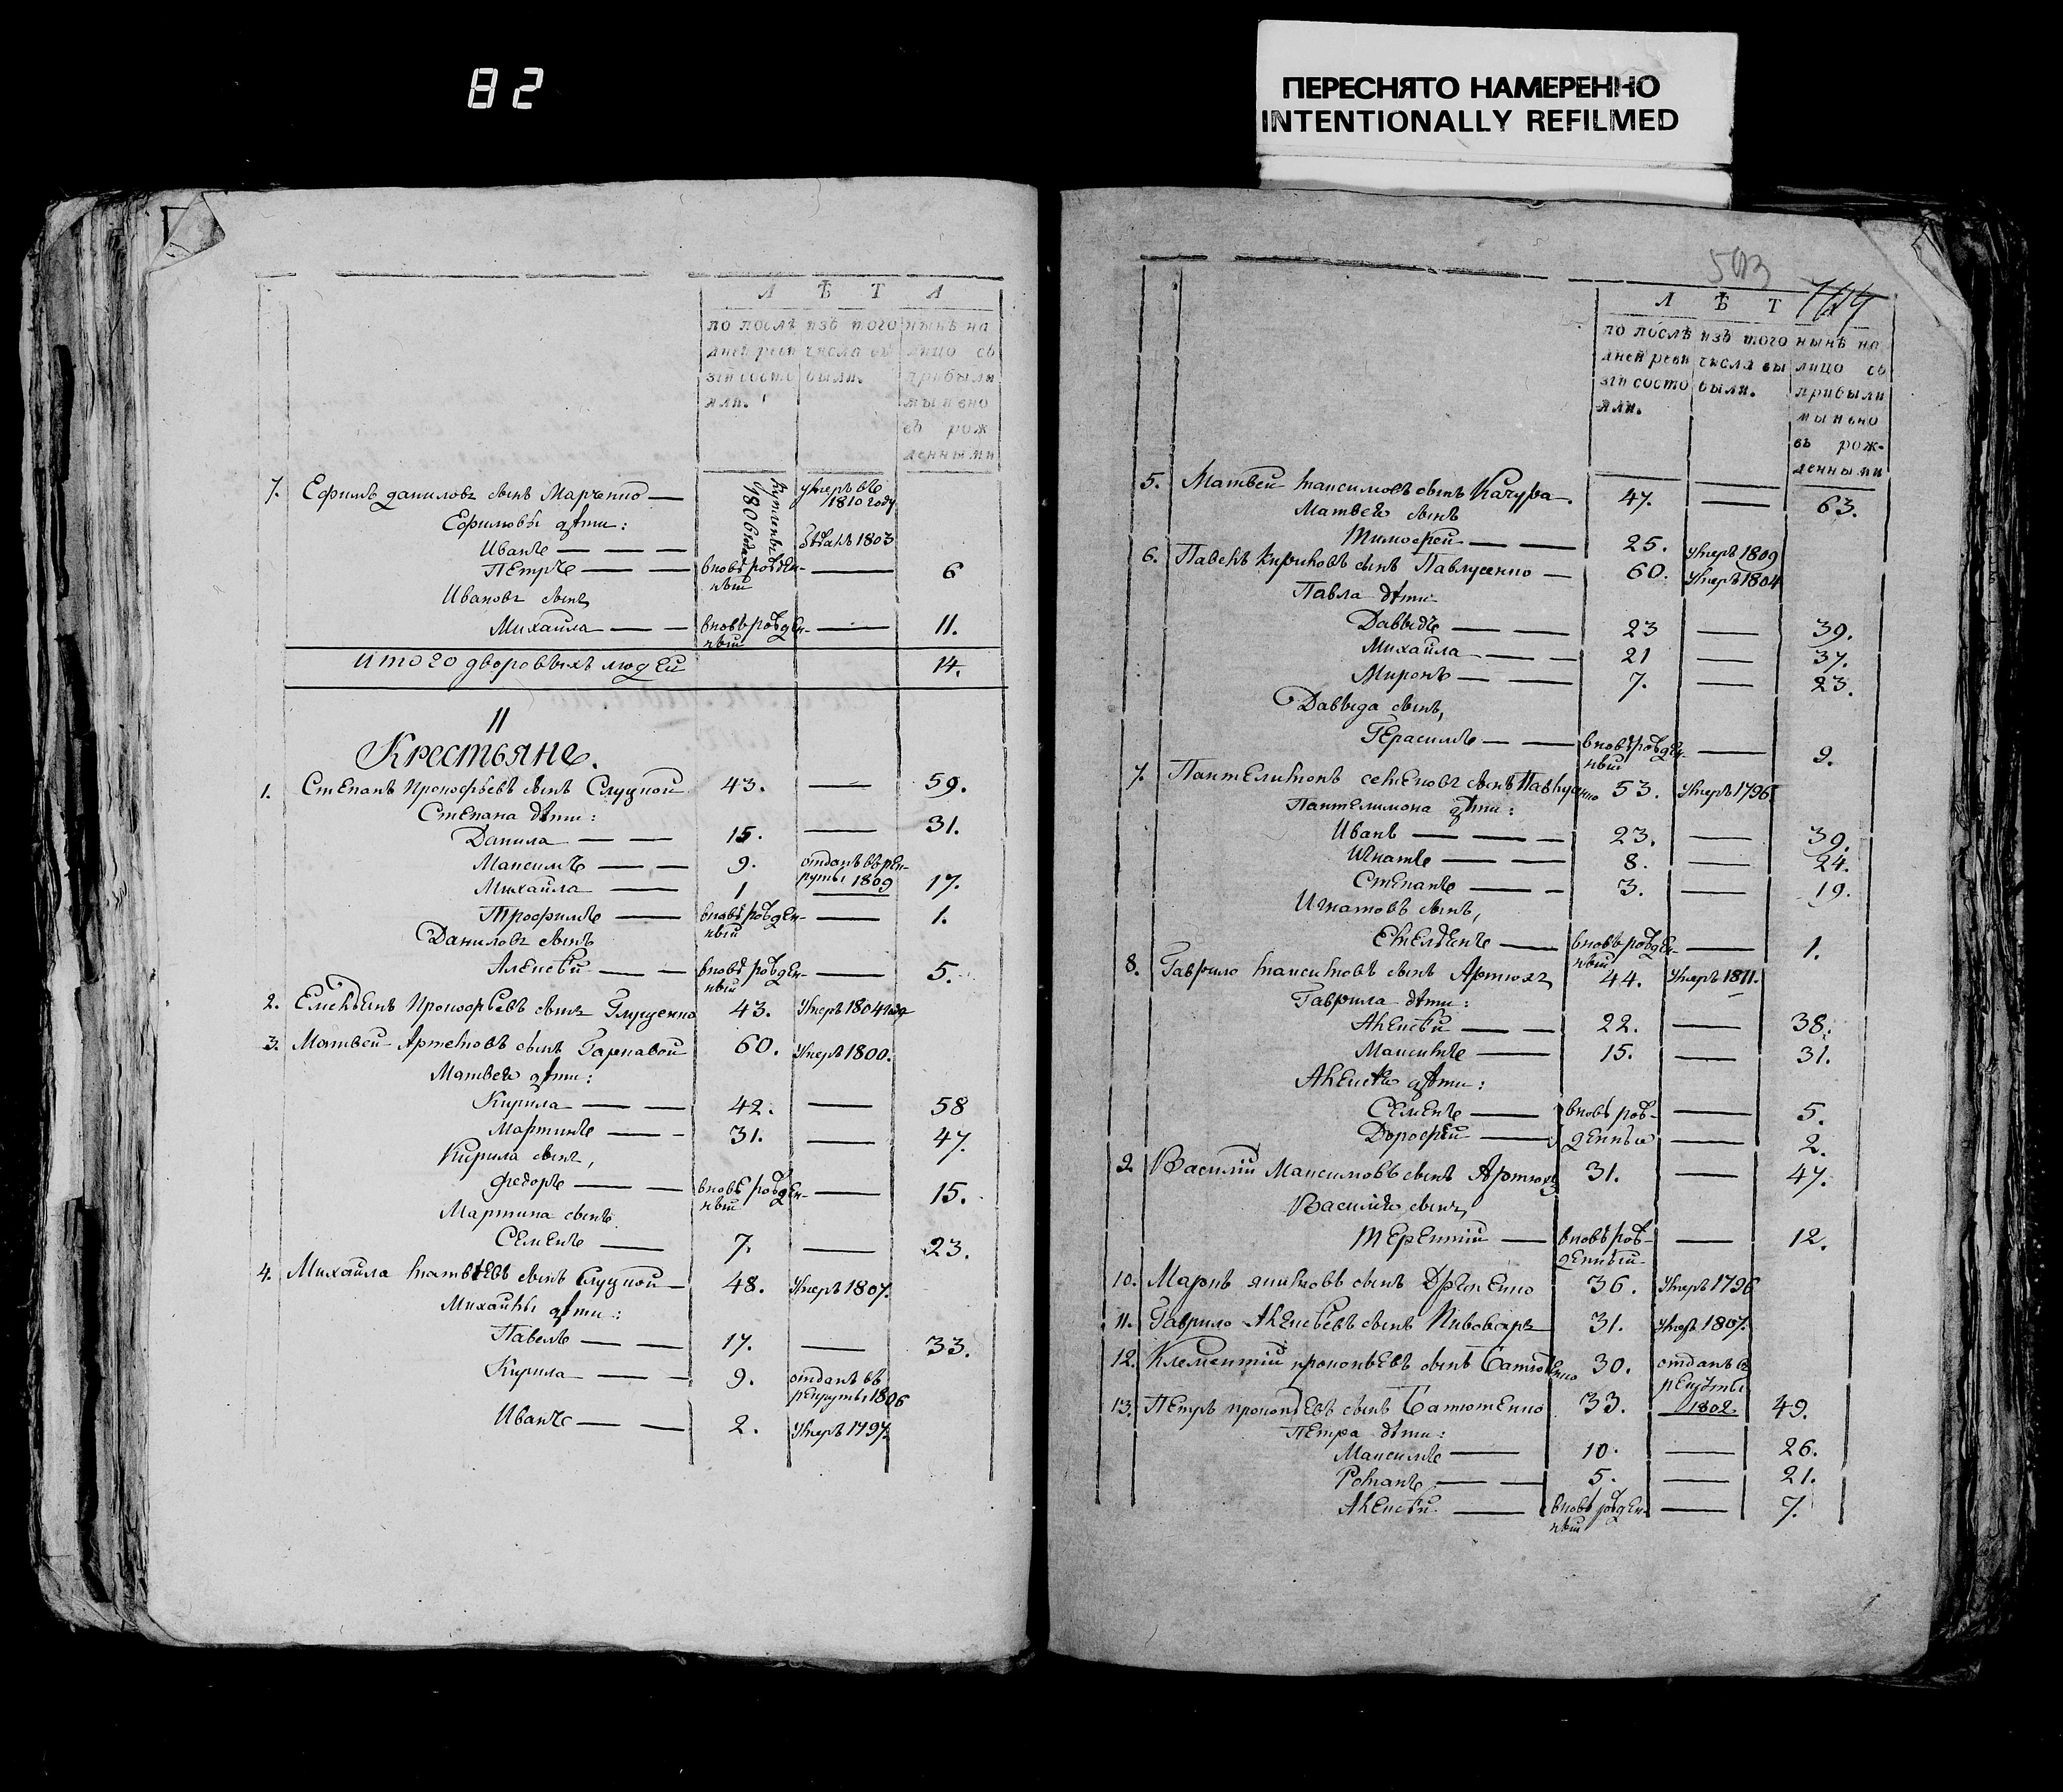 82
ПЕРЕСНЯТО НАМЕРЕННО
INTENTIONALLY REFILMED
Л Ѣ Т А
по послѣ изъ того нынѣ на
дней реви числа вы лицо съ
зіи состо были. прибыли
яли. мы и вно
въ рож
денными
7. Ефимъ даниловъ сынъ Марченко умеръ въ 1810 году
купленъ 1806 года
Ефимовы дѣти:
Иванъ 1803
Петръ вновь рожден- 6
ный
Ивановъ сынъ
Михайла вновь рожден- 11.
ный
итого дворовыхъ людей 14.
II
Крестьяне.
1. Степанъ Прокофьевъ сынъ Слуцкой 43. 59.
Степана дѣти:
Данила 15. 31.
Максимъ 9. отданъ въ рек-
руты 1809
Михайла 1 17.
Трофимъ вновь рожден- 1.
ный
Даниловъ сынъ
Алексѣй вновь рожден- 5.
ный
2. Емельянъ Прокофьевъ сынъ 43. умеръ 1804 года
3. Матвей Артемовъ сынъ Гаркавой 60. умеръ 1800.
Матвея дѣти:
Кирила 42. 58
Мартинъ 31. 47.
Кирила сынъ,
Федоръ вновь рожден- 15.
ный
Мартина сынъ
Семенъ 7. 23.
4. Михайла матвѣевъ сынъ Слуцкой 48. умеръ 1807.
Михайлы дѣти:
Павелъ 17. 33.
Кирила 9. отданъ въ
рекруты 1806
Иванъ 2. умеръ 1797.
503
Л Ѣ Т
по послѣ изъ того нынѣ на
дней реви числа вы лицо съ
зіи состо были. прибыли
яли. мы и вно
въ рож-
денными
5. Матвей максимовъ сынъ Качура 47. 63.
Матвея сынъ
Тимофей 25. умеръ 1809
6. Павелъ Кириковъ сынъ Павлусенко 60. умеръ 1804
Павла дѣти
Давыдъ 23 39.
Михайла 21 37.
Миронъ 7. 23.
Давыда сынъ,
Герасимъ вновь рожден- 2.
ный
7. Пантелимонъ семеновъ сынъ Павлусенко 53. умеръ 1796
Пантелимона дѣти:
Иванъ 23. 39.
Игнатъ 8. 24.
Степанъ 3. 19.
Игнатовъ сынъ,
Емельянъ вновь рожден- 1.
ный
8. Гаврило максимовъ сынъ Артюхъ 44. умеръ 1811.
Гаврила дѣти:
Алексѣй 22. 38.
Максимъ 15. 31.
Алексѣя дѣти:
Семенъ вновь рож- 5.
Дорофѣй денные 2.
9. Василій Максимовъ сынъ Артюхъ 31. 47.
Василія сынъ
Терентій вновь рож- 12.
денный
10. Марко якимовъ сынъ 36. умеръ 1796
11. Гаврило Алексѣевъ сынъ Пивоваръ 31. умеръ 1807.
12. Клементій прокопьевъ сынъ Батютенко 30. отданъ въ
рекруты
1802
13. Петръ прокопьевъ сынъ Батютенко 33. 49.
Петра дѣти:
Максимъ 10. 26.
Романъ 5. 21.
Алексѣй вновь рожден- 7.
ный